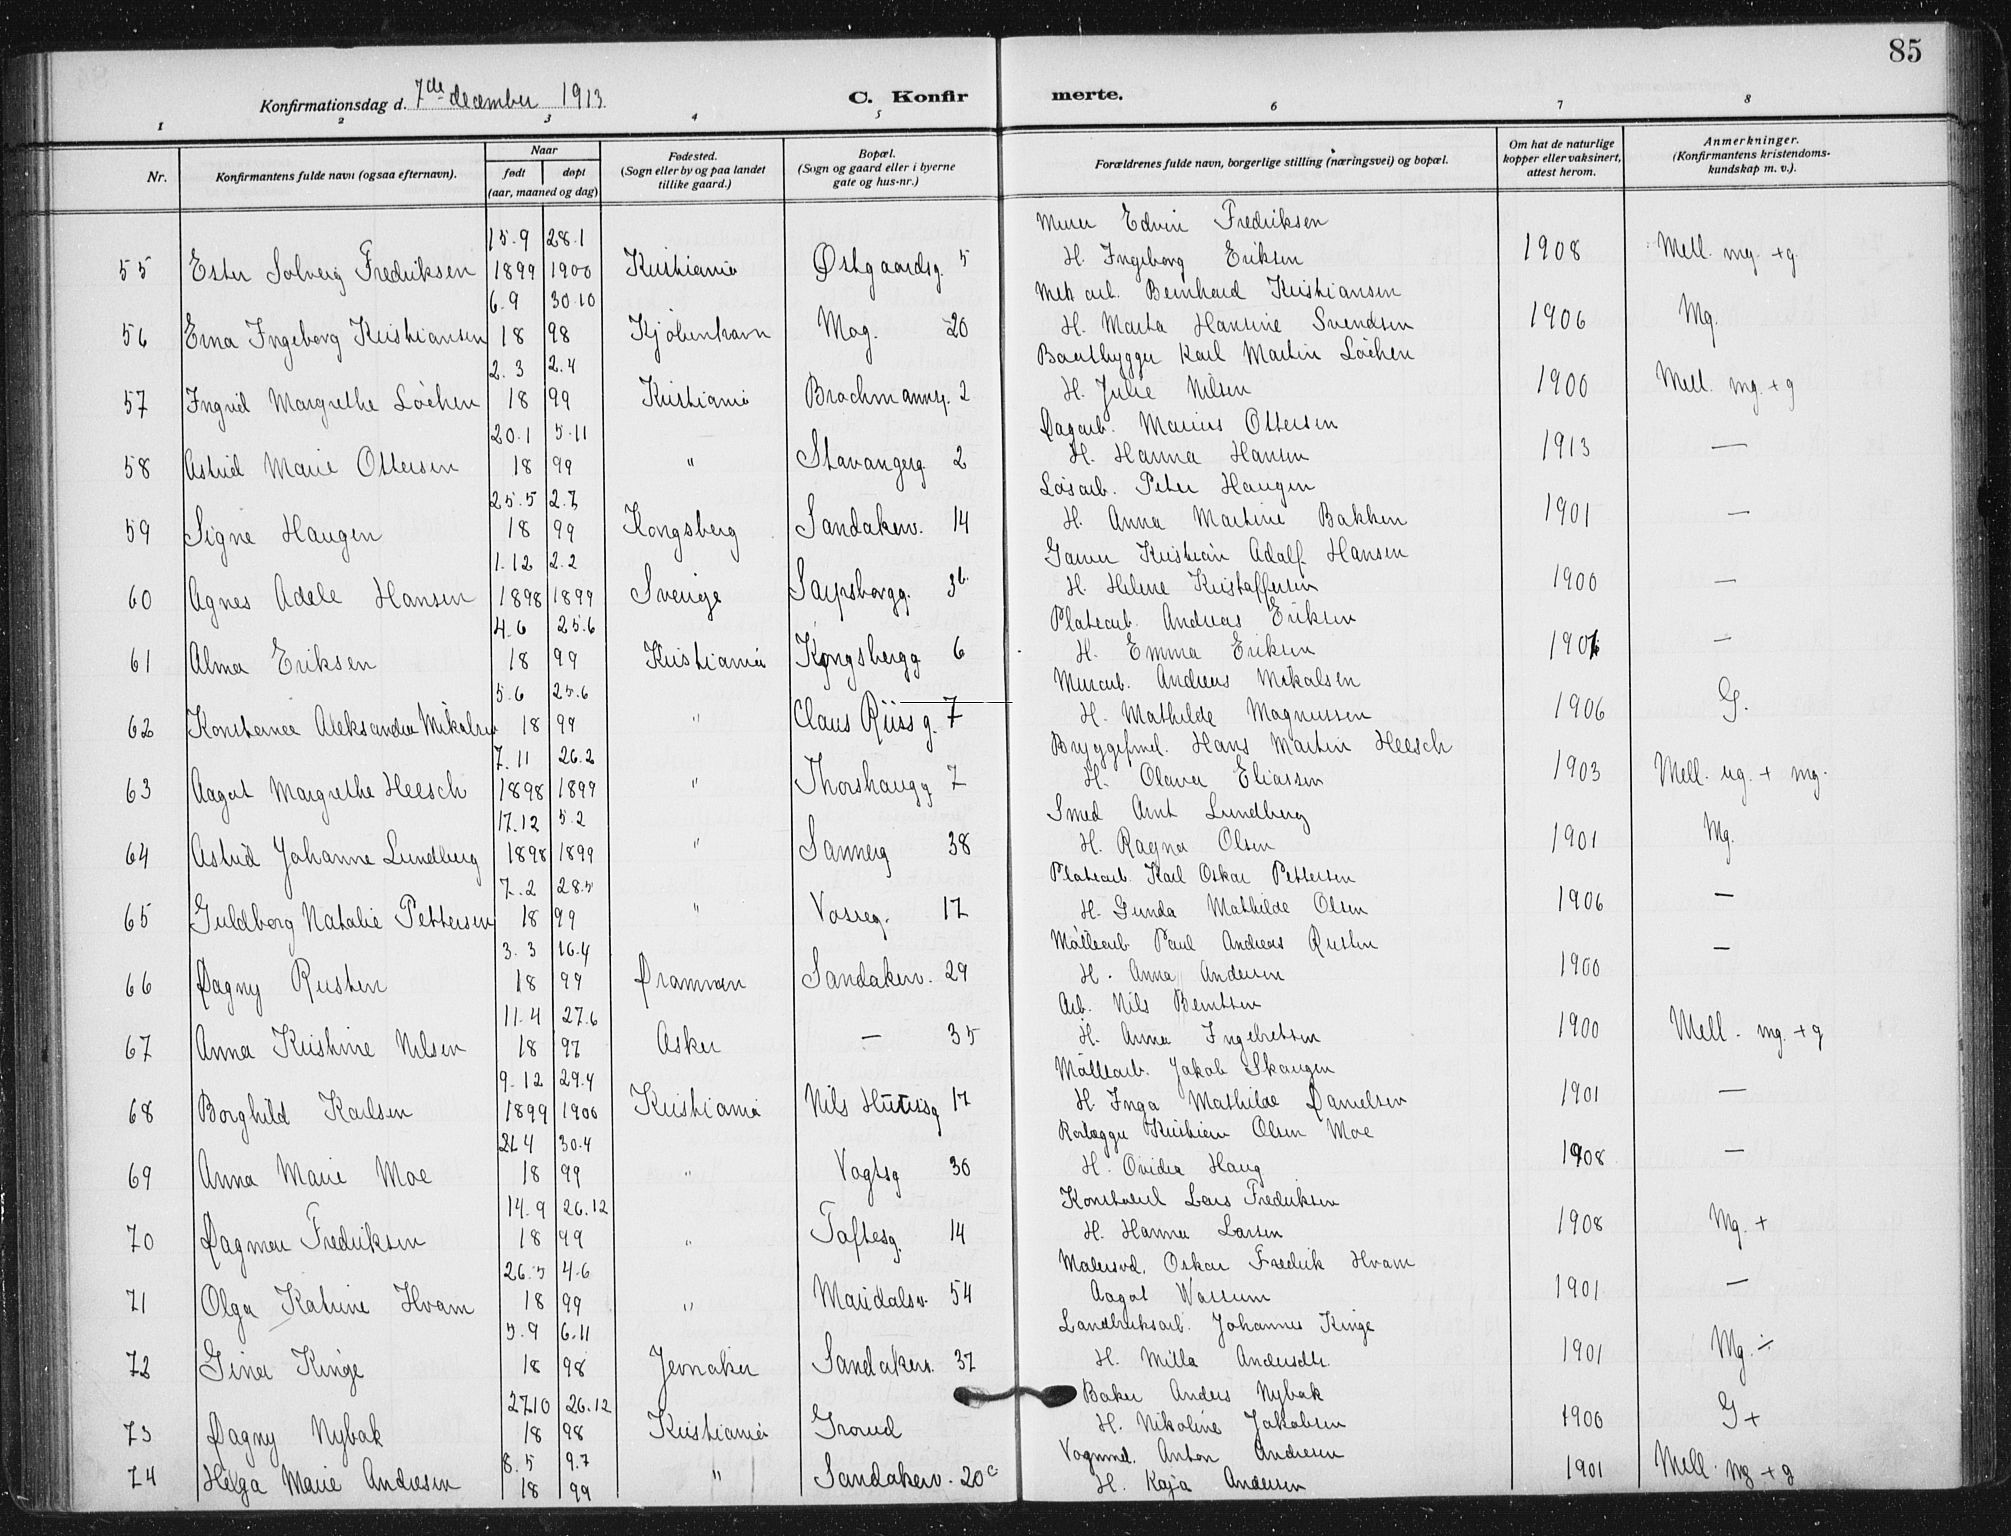 85
Konfirmationsdag d. 7de december 1913.
C. Konfirmerte.
1 2 3 4 5 6 7 8
Nr.
Konfirmantens fulde navn (ogsaa efternavn).
Naar
født døpt
(aar, maaned og dag)
Fødested.
(Sogn eller by og paa landet
tillike gaard.)
Bopæl.
(Sogn og gaard eller i byerne
gate og hus-nr.)
Forældrenes fulde navn, borgerlige stilling (næringsvei) og bopæl.
Om hat de naturlige
kopper eller vaksinert,
attest herom.
Anmerkninger.
(Konfirmantens kristendoms-
kundskap m. v.).
15.9 28.1 Murer Edvin Fredriksen
55 Ester Solveig Fredriksen 1899 1900 Kristiania Østgaardsg. 5 H. Ingeborg Eriksen 1908 Mell. mg. + g.
6.9 30.10 Mek arb. Bernhard Kristiansen
56 Erna Ingeborg Kristiansen 18 98 Kjøbenhavn Mog. 20 H. Marta Hansine Svendsen 1906 Mg.
2.3 2.4 Baatbygger Karl Martin Löchen
57 Ingrid Margrethe Löchen 18 99 Kristiania Brochmannsg. 2 H. Julie Nilsen 1900 Mell. mg. + g
20.1 5.11 Dagarb. Marius Ottersen
58 Astrid Marie Ottersen 18 99 " Stavangerg. 2 H. Hanna Hansen 1913 —
25.5 2.7 Løsarb. Peter Haugen
59 Signe Haugen 18 99 Kongsberg Sandakerv. 14 H. Anna Martine Bakken 1901 —
1.12 2.2 Garver Kristian Adolf Hansen
60 Agnes Adele Hansen 1898 1899 Sverige Sarpsborgg. 3b. H. Helene Kristoffersen 1900 —
4.6 25.6 Platearb. Andreas Eriksen
61 Alma Eriksen 18 99 Kristiania Kongsbergg 6 H. Emma Eriksen —
5.6 25.6 Murarb. Andreas Mikalsen
62 Konstance Aleksandra Mikalsen 18 99 " Claus Riisg. 7 H. Mathilde Magnussen 1906 G.
7.11 26.2 Bryggefmd. Hans Martin Heesch
63 Aagot Margrethe Heesch 1898 1899 " Thorshaugg 7 H. Olava Eliassen 1903 Mell. ug. + mg.
17.12 5.2 Smed Arnt Lundberg
64 Astrid Johanne Lundberg 1898 1899 " Sannerg 38 H. Ragna Olsen 1901 Mg.
7.2 28.5 Platearb. Karl Oskar Pettersen
65 Guldborg Natalie Pettersen 18 99 " Vosseg. 17 H. Gunda Mathilde Olsen 1906 —
3.3 16.4 Möllearb. Paul Andreas Rusten
66 Dagny Rusten 18 99 Drammen Sandakerv. 29 H. Anna Andersen 1900 —
11.4 27.6 Arb. Nils Berntsen
67 Anna Kristine Nilsen 18 97 Asker — 35 H. Anna Ingebretsen 1900 Mell. mg. + g
9.12 29.4 Möllearb. Jakob Skaugen
68 Borghild Karlsen 1899 1900 Kristiania Nils Huusg 17 H Inga Mathilde Danielsen 1901 —
21.4 30.4 Rørlægger Kristian Olsen Moe
69 Anna Marie Moe 18 99 " Vogtsg 36 H. Ovidia Haug 1908 —
14.9 26.12 Lars Fredriksen
70 Dagmar Fredriksen 18 99 " Toftesg. 14 H. Hanna Larsen 1908 Mg. +
26.5 4.6 Malersvd. Oskar Fredrik Hvam
71 Olga Katrine Hvam 18 99 " Maridalsv. 54 Aagot Wassum 1901 —
5.9 6.11 Landbruksarb. Johannes Kinge
72 Gina Kinge 18 98 Jevnaker Sandakerv. 37 H. Milla Andersdtr. 1901 Mg. ÷
27.10 26.12 Baker Anders Nybak
73 Dagny Nybak 18 98 Kristiania Grorud H. Nikoline Jakobsen 1906 G +
8.5 9.7 Vognmd. Anton Andresen
74 Helga Marie Andresen 18 99 " Sandakerv. 20c H. Kaja Andersen 1901 Mell. mg + g